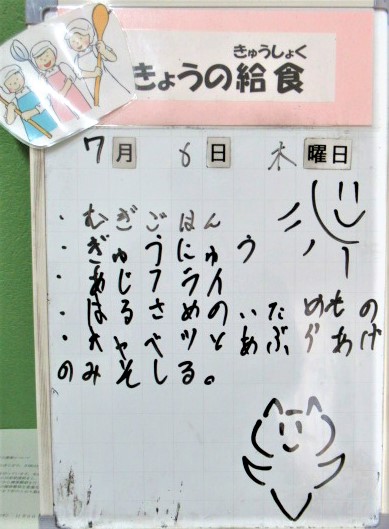 きゅうしょく
きょうの給食
7月 6日 木曜日
・むぎごはん
・ぎゅうにゅう
・あじフライ
・はるさめのいためもの
・キャベツとあぶらあげ
のみそしる。